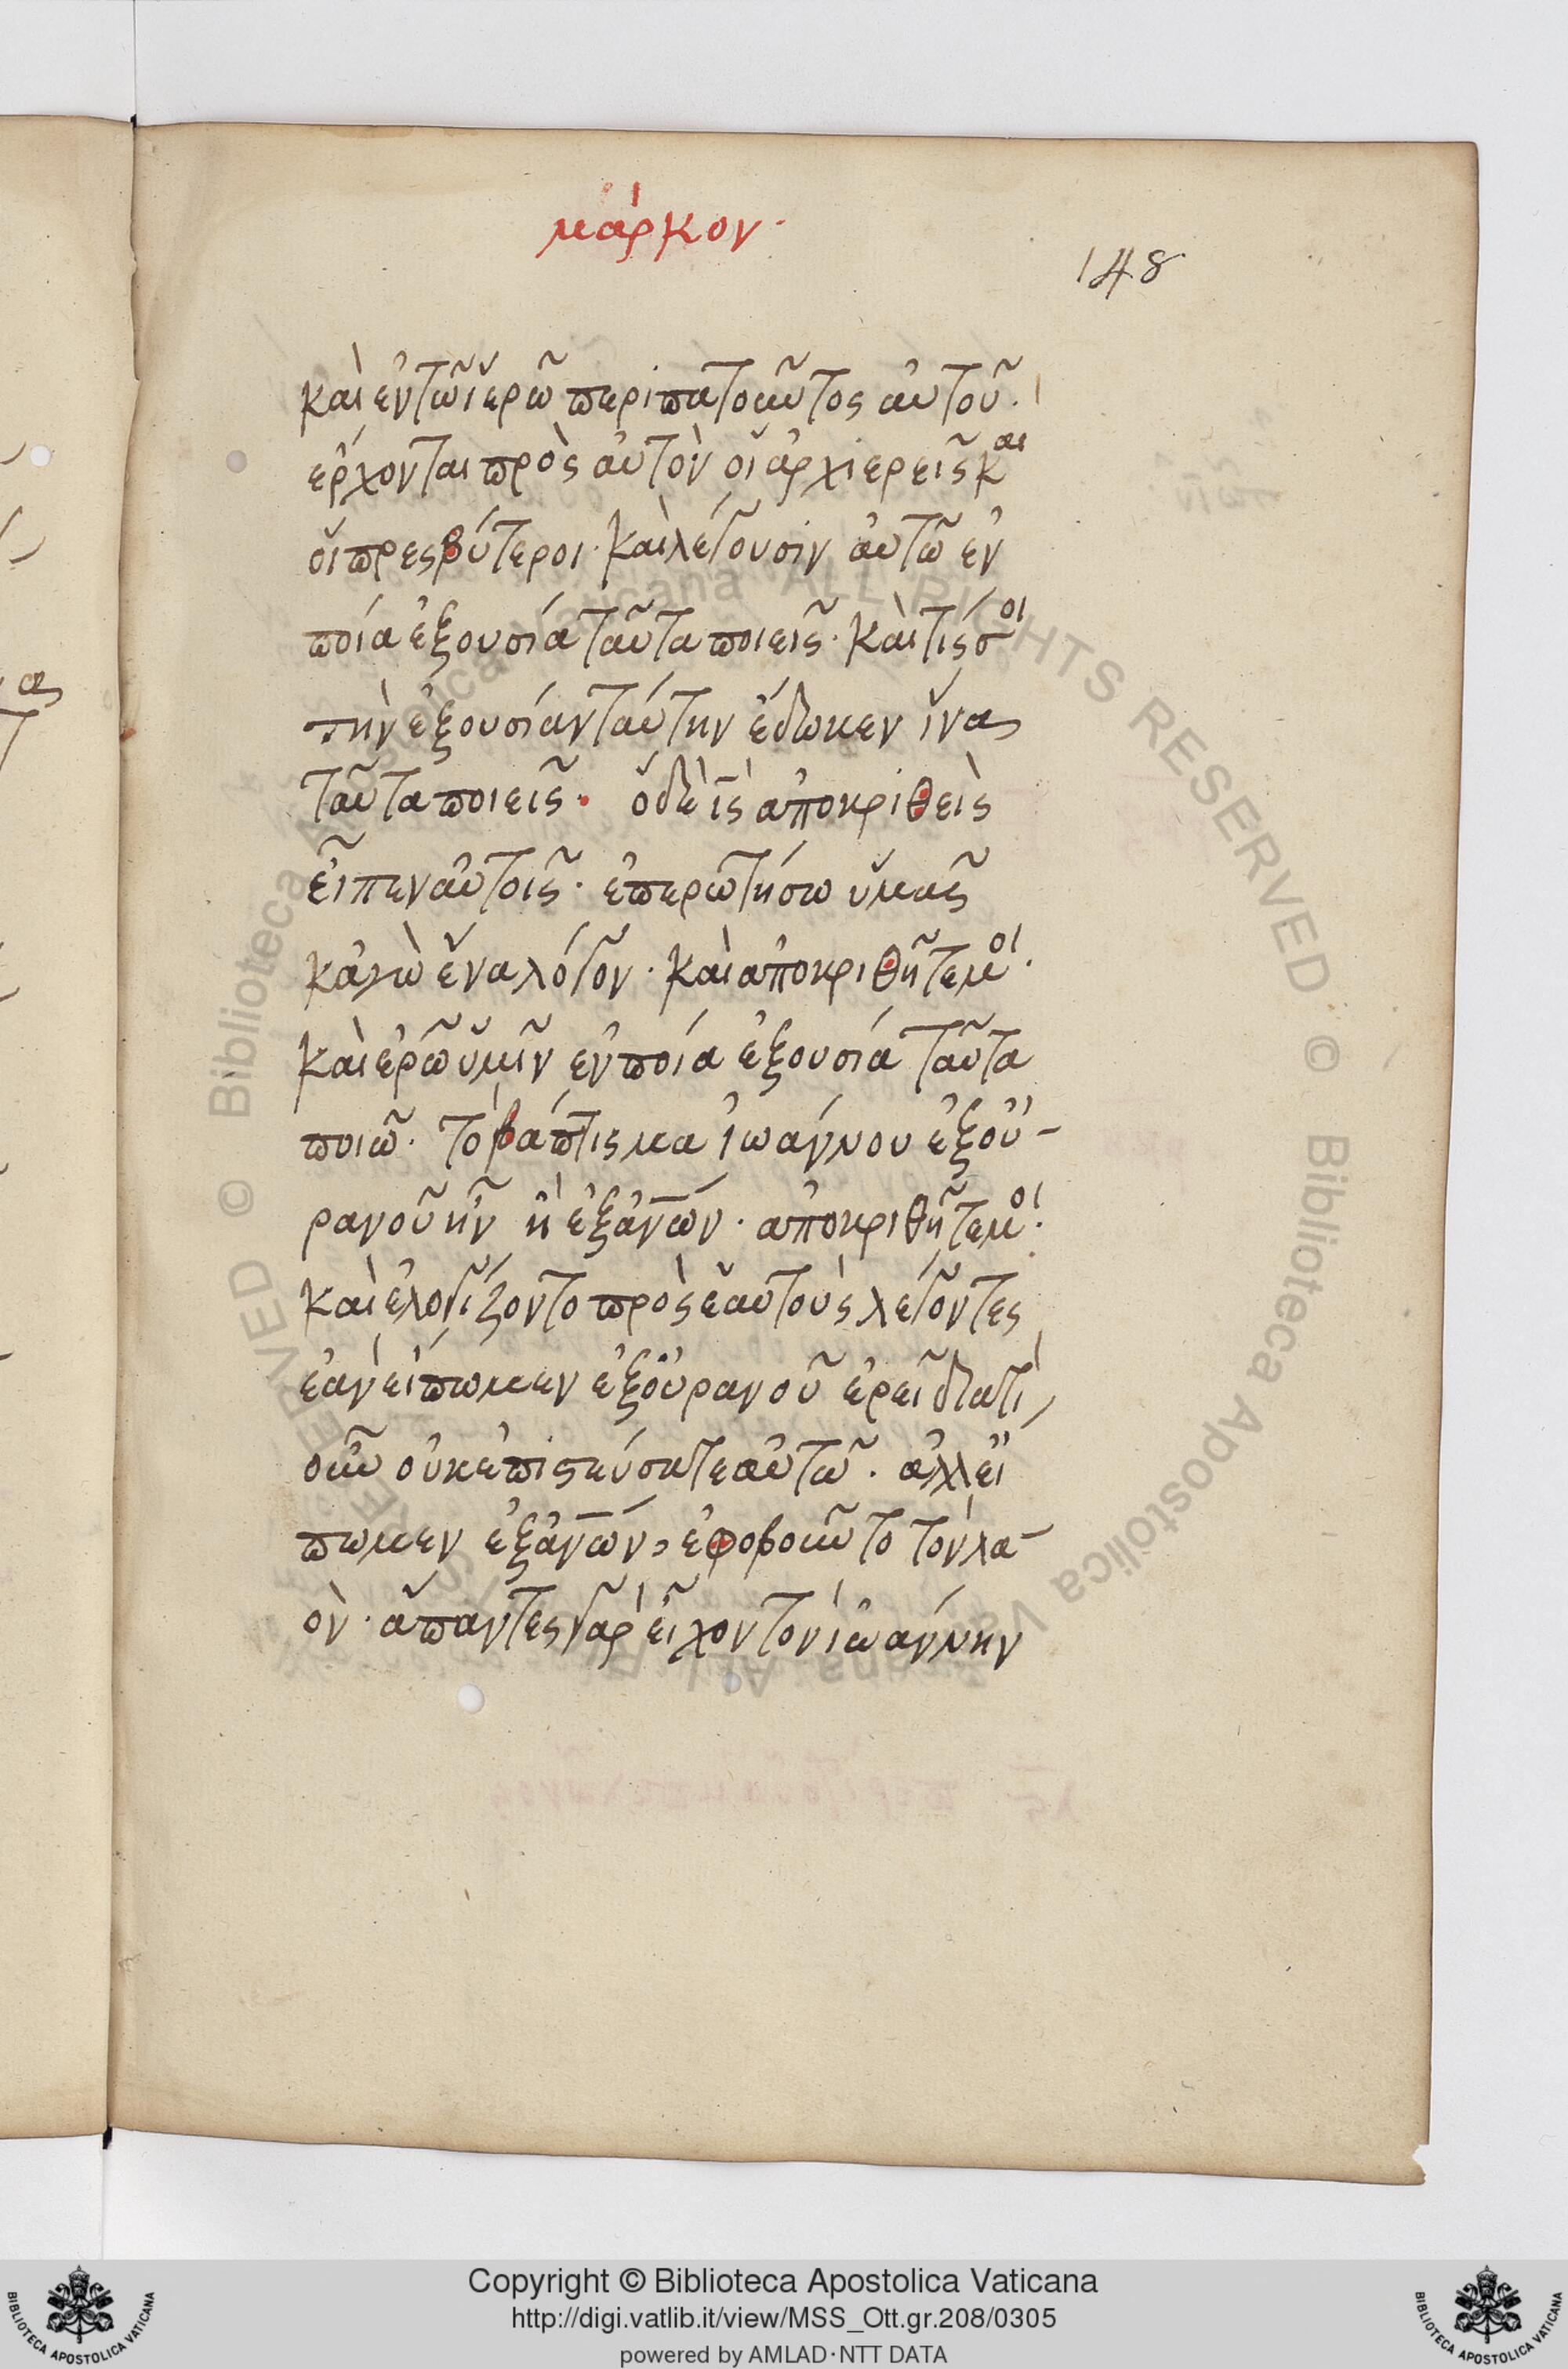 μάρκον·
148
καὶ ἐν τῶ ἱερῶ περιπατοῦντος αὐτοῦ·
ἔρχονται πρὸς αὐτὸν οἱ ἀρχιερεῖς και
οἱ πρεσβύτεροι· καὶ λέγουσιν αὐτῶ ἐν
ποία ἐξουσία ταῦτα ποιεῖς· καὶ τίς σοι
τὴν ἐξουσίαν ταύτην ἔδωκεν ἵνα
ταῦτα ποιεῖς· ὁ δὲ ι̅ς̅ ἀποκριθεὶς
εἶπεν αὐτοῖς· ἐπερωτήσω ὑμᾶς
κἀγὼ ἕνα λόγον· καὶ ἀποκριθῆτε μοι·
καὶ ἐρῶ ὑμῖν ἐν ποία ἐξουσία ταῦτα
ποιῶ· τὸ βάπτισμα ἰωάννου ἐξ οὐ-
ρανοῦ ἦν ἢ ἐξ α̅ν̅ω̅ν· ἀποκριθῆτε μοι·
καὶ ἐλογίζοντο πρὸς ἑαυτοὺς λέγοντες
ἐὰν εἴπωμεν ἐξ οὐρανοῦ ἐρεῖ διατί
οὖν οὐκ ἐπιστεύσατε αὐτῶ· ἀλλ εἴ
πωμεν ἐξ α̅ν̅ω̅ν, ἐφοβοῦντο τὸν λα-
ὸν· ἅπαντες γὰρ εἶχον τὸν ἰωάννην
Copyright © Biblioteca Apostolica Vaticana
http://digi.vatlib.it/view/MSS_Ott.gr.208/0305
powered by AMLAD·NTT DATA